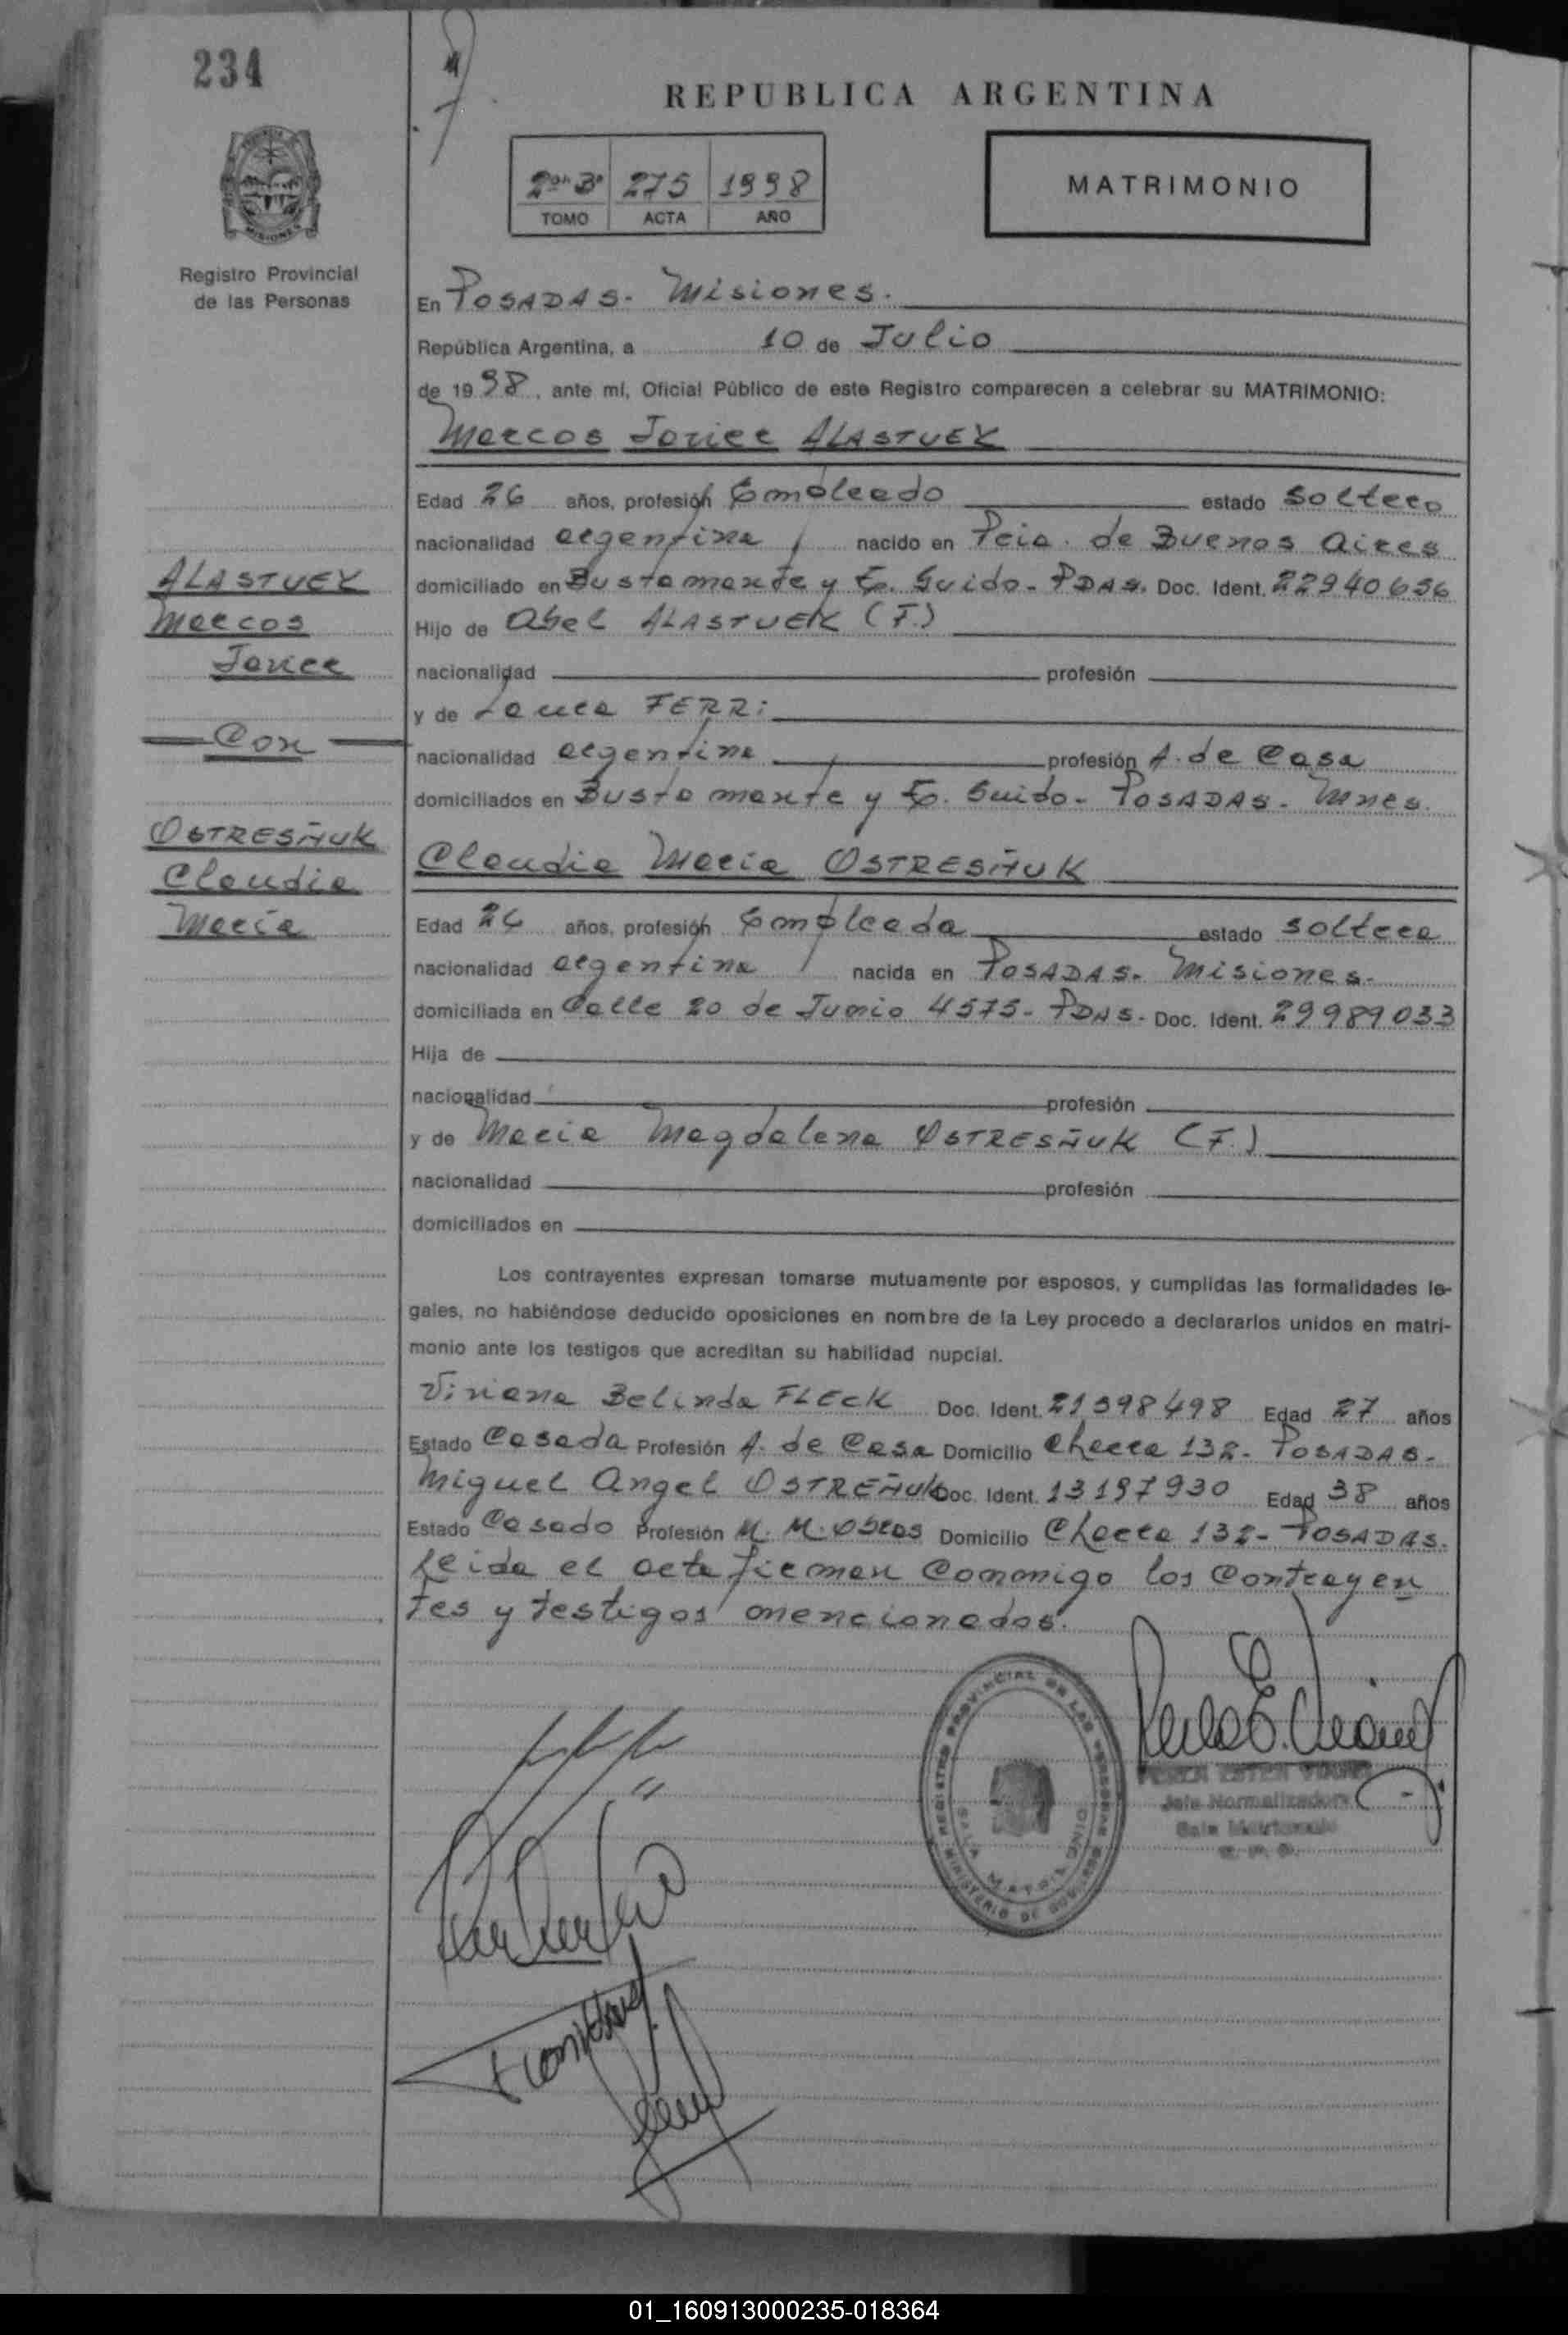 234
REPUBLICA ARGENTINA
2do B° 275 1998
TOMO ACTA AÑO
MATRIMONIO
Registro Provincial
de las Personas
En POSADAS - Misiones.
República Argentina, a 10 de Julio
de 19 98, ante mí, Oficial Público de este Registro comparecen a celebrar su MATRIMONIO:
Marcos Javier ALASTUEY
Edad 26 años, profesión Empleado estado soltero
nacionalidad argentina nacido en Pcia. de Buenos Aires
domiciliado en Bustamante y T. Guido - PDAS. Doc. Ident. 22940656
Hijo de Abel ALASTUEY (F.)
nacionalidad profesión
y de Laura FERRi
nacionalidad argentina profesión A. de Casa
domiciliados en Bustamante y T. Guido - POSADAS - Mnes.
ALASTUEY
Marcos
Javier
Con
OSTRESÑUK
Claudia
María
Claudia María OSTRESÑUK
Edad 26 años, profesión Empleada estado soltera
nacionalidad argentina nacida en POSADAS - Misiones.
domiciliada en Calle 20 de Junio 4575 - PDAS - Doc. Ident. 29989033
Hija de
nacionalidad profesión
y de María Magdalena OSTRESÑUK (F.)
nacionalidad profesión
domiciliados en
Los contrayentes expresan tomarse mutuamente por esposos, y cumplidas las formalidades le-
gales, no habiéndose deducido oposiciones en nombre de la Ley procedo a declararlos unidos en matri-
monio ante los testigos que acreditan su habilidad nupcial.
Viviana Belinda FLECK Doc. Ident. 21398498 Edad 27 años
Estado Casada Profesión A. de Casa Domicilio Chacra 132 - POSADAS -
Miguel Angel OSTREÑUK Doc. Ident. 13197930 Edad 38 años
Estado Casado Profesión M. M. Obras Domicilio Chacra 132 - POSADAS.
Leida el acta firman conmigo los contrayen
tes y testigos mencionados.
REGISTRO PROVINCIAL DE LAS PERSONAS
MINISTERIO DE GOBIERNO
SALA MATRIMONIO
Jefe Normalizadora
01_160913000235-018364